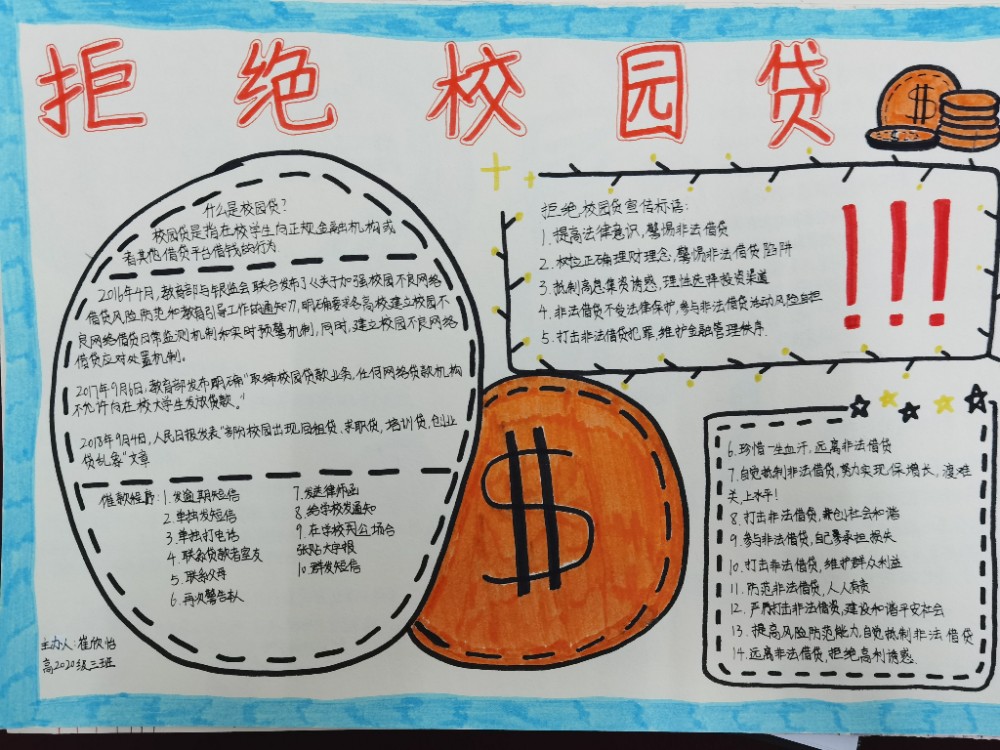 拒绝校园贷
什么是校园贷?
校园贷是指在校学生向正规金融机构或
者其他借贷平台借钱的行为.
2016年4月,教育部与银监会联合发布了《关于加强校园不良网络
借贷风险防范和教育引导工作的通知》,明确要求各高校建立校园不
良网络借贷日常监测机制和实时预警机制,同时,建立校园不良网络
借贷应对处置机制。
2017年9月6日,教育部发布明确"取缔校园贷款业务,任何网络贷款机构
不允许向在校大学生发放贷款。"
2018年9月4日,人民日报发表"部分校园出现回租贷、求职贷,培训贷,创业
贷乱象"文章
催款程序:1.发逾期短信
2.单独发短信
3.单独打电话
4.联系贷款者室友
5.联系父母
6.再次警告本人
7.发送律师函
8.给学校发通知
9.在学校公共场合
张贴大字报
10.群发短信
主办人:崔欣怡
高2020级三班
拒绝校园贷宣传标语:
1.提高法律意识,警惕非法借贷
2.树立正确理财理念,警惕非法借贷陷阱
3.抵制高息集资诱惑,理性选择投资渠道
4.非法借贷不受法律保护,参与非法借贷活动风险自担
5.打击非法借贷犯罪,维护金融管理秩序.
!!!
6.珍惜一生血汗,远离非法借贷
7.自觉抵制非法借贷,努力实现保增长,渡难
关,上水平!
8.打击非法借贷,兼创社会和谐
9.参与非法借贷,自己要承担损失
10.打击非法借贷,维护群众利益
11.防范非法借贷,人人有责
12.严厉打击非法借贷,建设和谐平安社会
13.提高风险防范能力,自觉抵制非法借贷
14.远离非法借贷,拒绝高利诱惑.